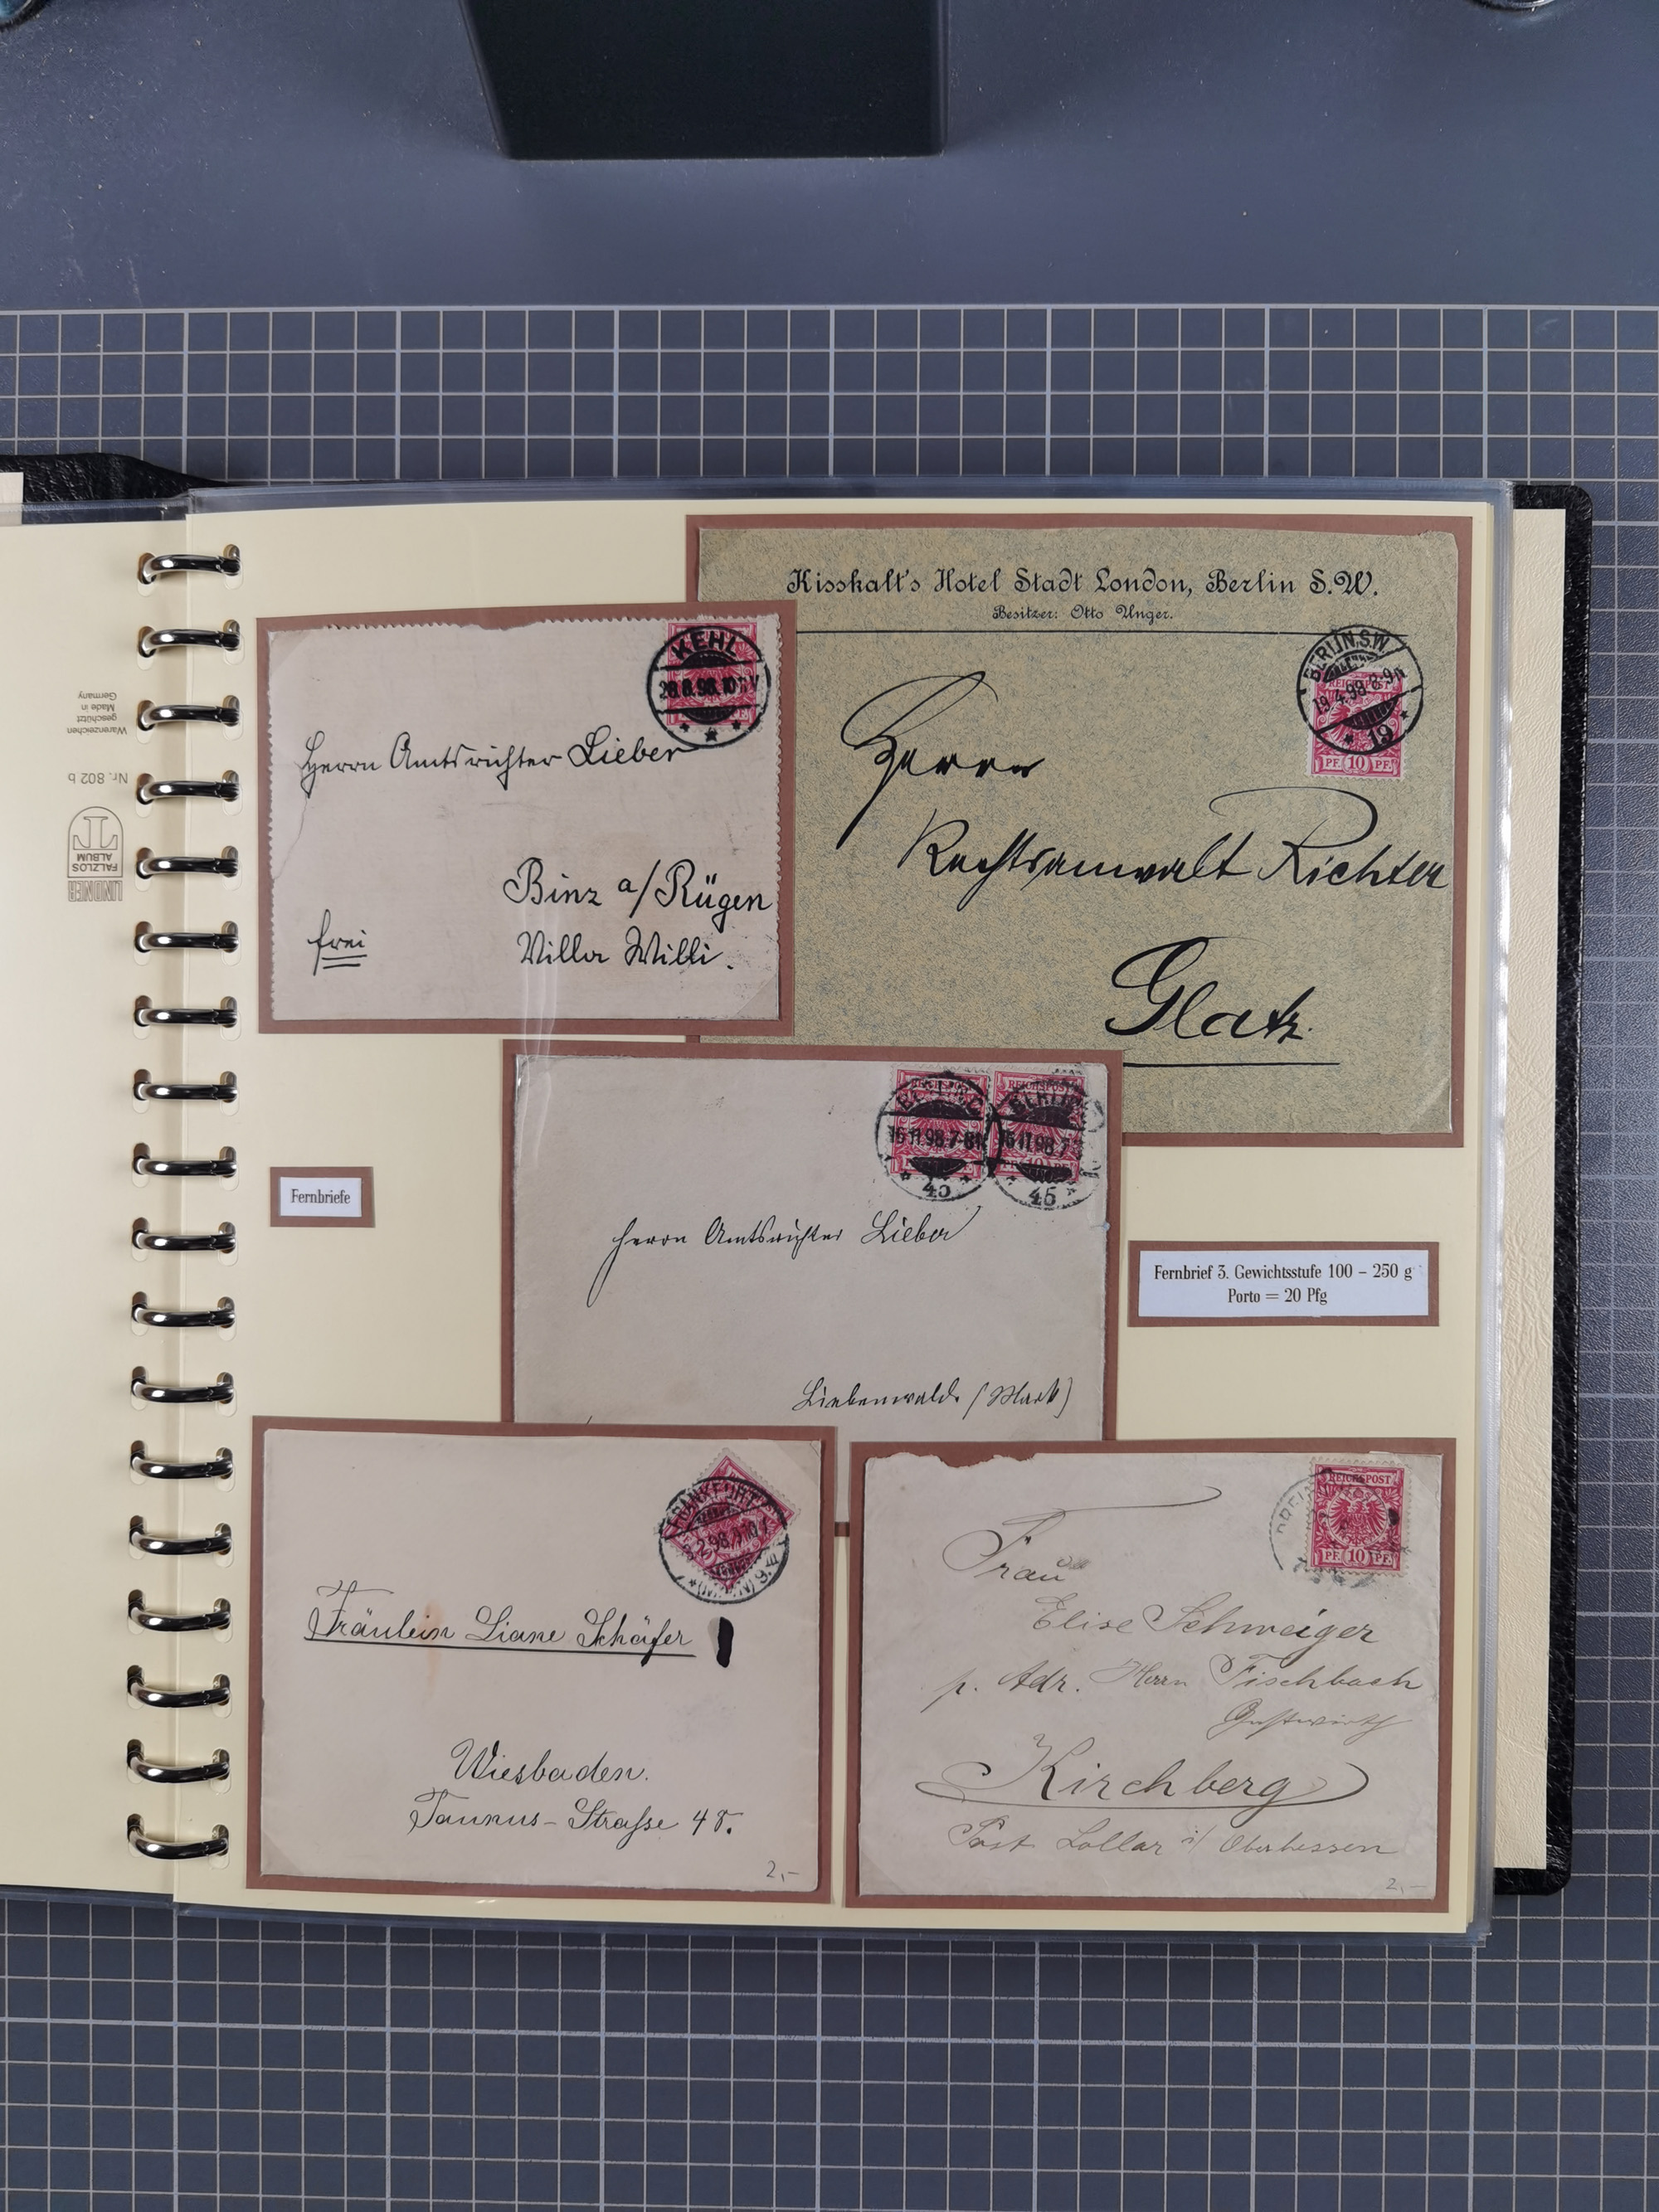 Kisskalt's Hotel Stadt London, Berlin S.W.
Besitzer: Otto Unger.
BERLIN.S.W.
19.4.99.8-9N
* 19 *
REICHSPOST
PF. 10 PF.
Herrn
Rechtsanwalt Richter
Glatz.
KEHL
28.8.98.10-11V
Herrn Amtsrichter Lieber
Binz a/Rügen
frei
Villa Willi.
REICHSPOST
REICHSPOST
BERLIN
BERLIN
15.11.98.7-8N
15.11.98.7-
45
45
Herrn Amtsrichter Lieber
Liebenwalde (Mark)
Fernbriefe
Fernbrief 3. Gewichtsstufe 100 – 250 g
Porto = 20 Pfg
FRANKFURT
(MAIN) 9.
Fräulein Liane Schäfer
Wiesbaden.
Taunus-Straße 48.
2,-
REICHSPOST
PF. 10 PF.
Frau
Elise Schweiger
p. Adr. Herrn Fischbach
Gastwirth
Kirchberg
Post Lollar i/ Oberhessen
2,-
LINDNER
FALZLOS
ALBUM
Nr. 802 b
Warenzeichen
geschützt
Made in
Germany